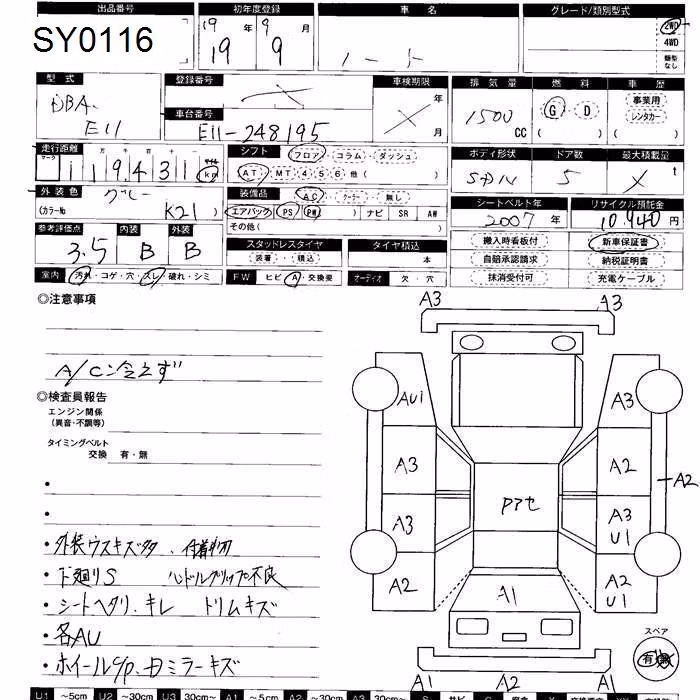 出品番号 初年度登録 車名 グレード/類別型式
SY0116 19年9月
19 9 ノート 2WD
4WD
類型なし
型式 登録番号 車検期限 排気量 燃料 車歴
DBA- E11 年
月
車台番号 E11-248195
1500cc G・D ( ) 事業用
レンタカー
( )
走行距離 シフト ボディ形状 ドア数 最大積載量
マーク 十 万 千 百 十 一
119431 km
フロア・コラム・ダッシュ
AT・MT・4・5・6 他( )
5 t
外装色 装備品 シートベルト年 リサイクル預託金
グレー AC・クーラー・無し 2007年 10940円
(カラーNo K21) エアバック PS PW ナビ SR AW
その他( )
参考評価点 内装 外装
3.5 B B
搬入時看板付 新車保証書
スタッドレスタイヤ タイヤ積込 自賠承認請求 納税証明書
装着・積込 本
室内 汚れ・コゲ・穴・スレ・破れ・シミ FW ヒビ・A・交換要 オーディオ 欠・穴 抹消受付可 充電ケーブル
◎注意事項
A/C冷えず
◎検査員報告
エンジン関係
(異音・不調等)
タイミングベルト
交換 有・無
・
・
・外装ウスキズ多、付着物
・下廻りS ハンドルグリップ不良
・シートヘタリ、キレ トリムキズ
・各AU
・ホイールc/p、ミラーキズ
A3 A3
AU1 A3
A3 A2
A2
A3 A3
U1
A2 A2
U1
Pアセ
A1
A1 A2 A1
スペア
有・無
U1 ~5cm U2 ~30cm U3 30cm~ A1 ~5cm A2 ~30cm A3 30cm~